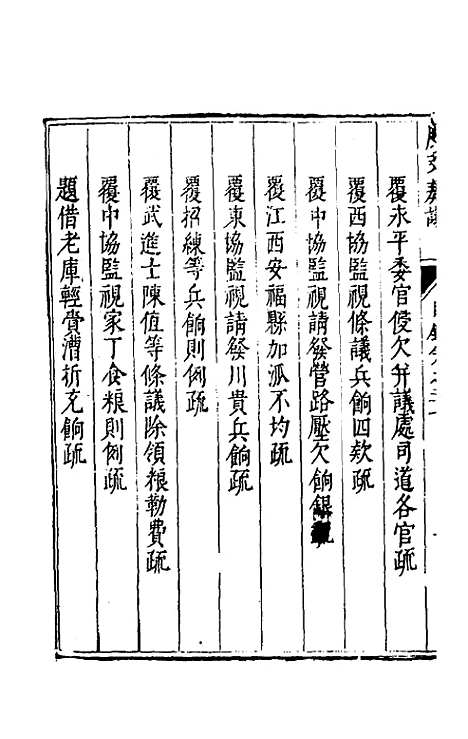 覆永平委官侵欠并議處司道各官疏
覆西協監視條議兵餉四欵疏
覆中協監視請發營路壓欠餉銀疏
覆江西安福縣加派不均疏
覆東協監視請發川貴兵餉疏
覆招練等兵餉則例疏
覆武進士陳值等條議除領粮勒費疏
覆中協監視家丁食粮則例疏
題借老庫輕賫漕折充餉疏